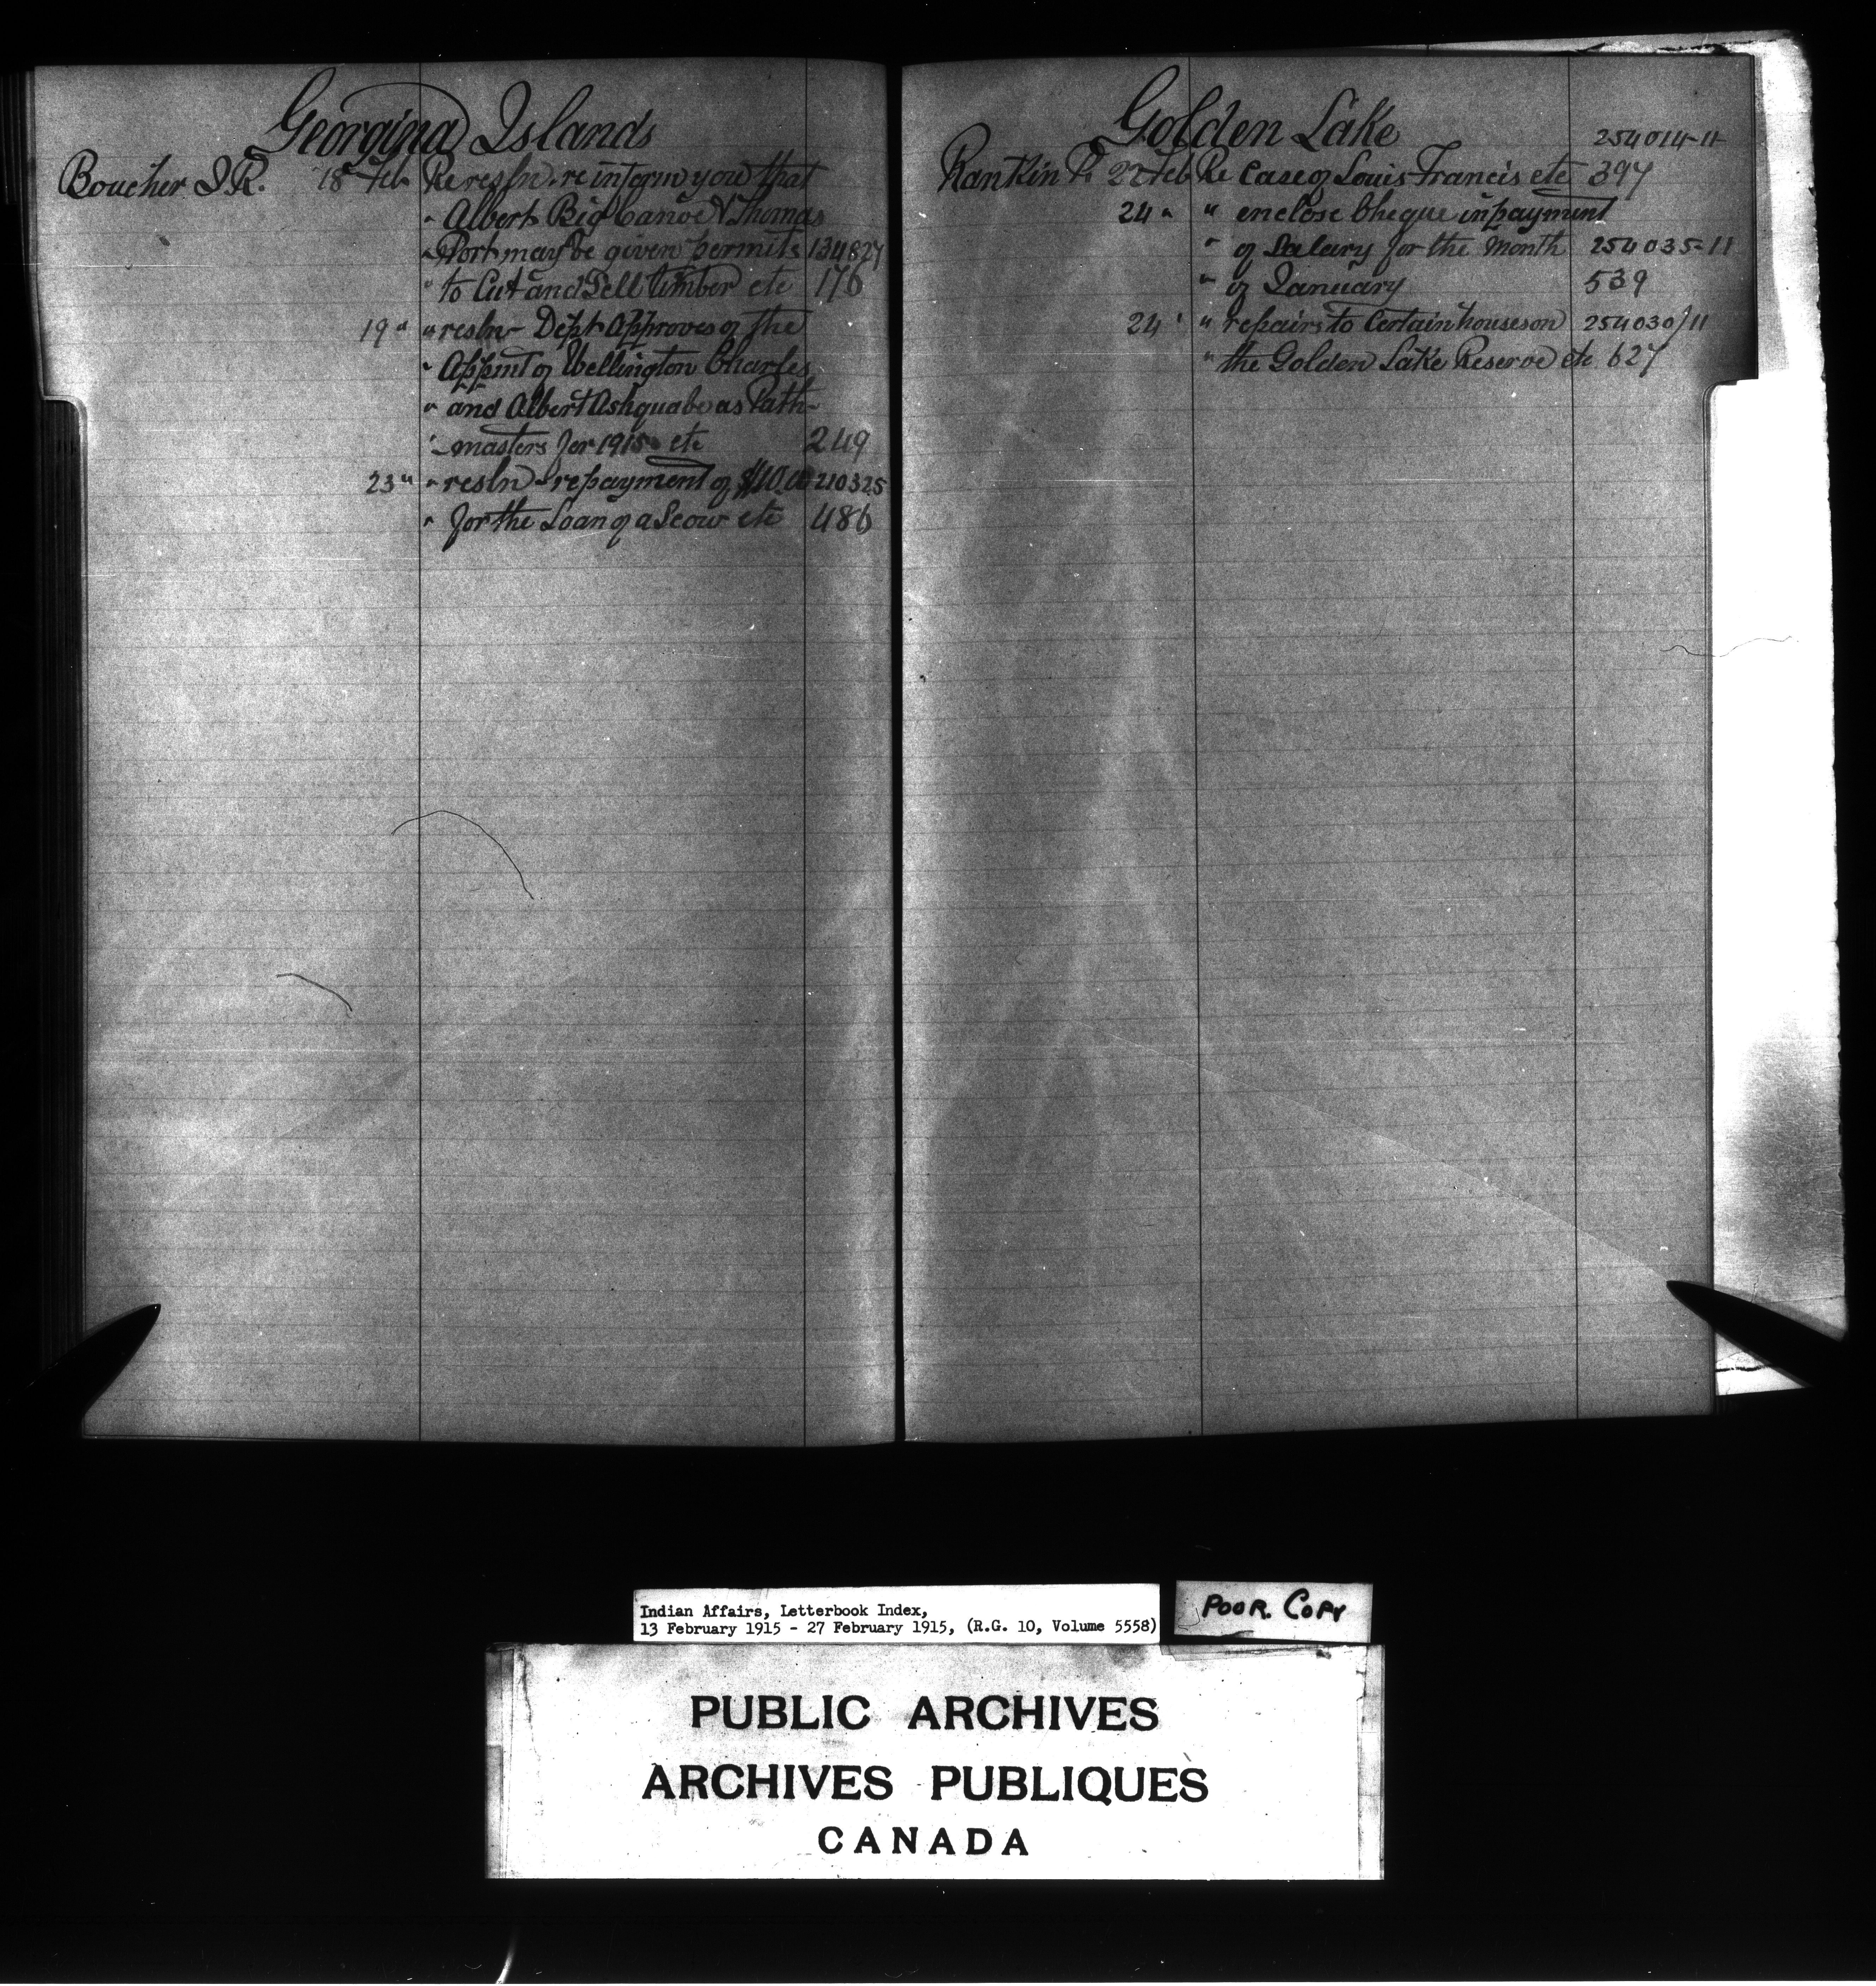 Georgina Islands
Boucher J.R. 18 Feb Re resln. re inform you that
" Albert Big Canoe & Thomas
" Port may be given permits 134827
" to Cut and Sell timber etc 176
19 " " resln - Dept Approves of the
" Appmt of Wellington Charles
" and Albert Ashquabe as Path-
" masters for 1915 etc 249
23 " " resln - repayment of $10.00 210325
" for the Loan of a Scow etc 486
Golden Lake
254014-11
Rankin P. 22 Feb Re Case of Louis Francis etc 397
24 " " enclose Cheque in payment
" of Salary for the Month 254035-11
" of January 539
24 " " repairs to Certain houses on 254030/11
" the Golden Lake Reserve etc 627
Indian Affairs, Letterbook Index,
13 February 1915 - 27 February 1915, (R.G. 10, Volume 5558)
POOR. COPY
PUBLIC ARCHIVES
ARCHIVES PUBLIQUES
CANADA